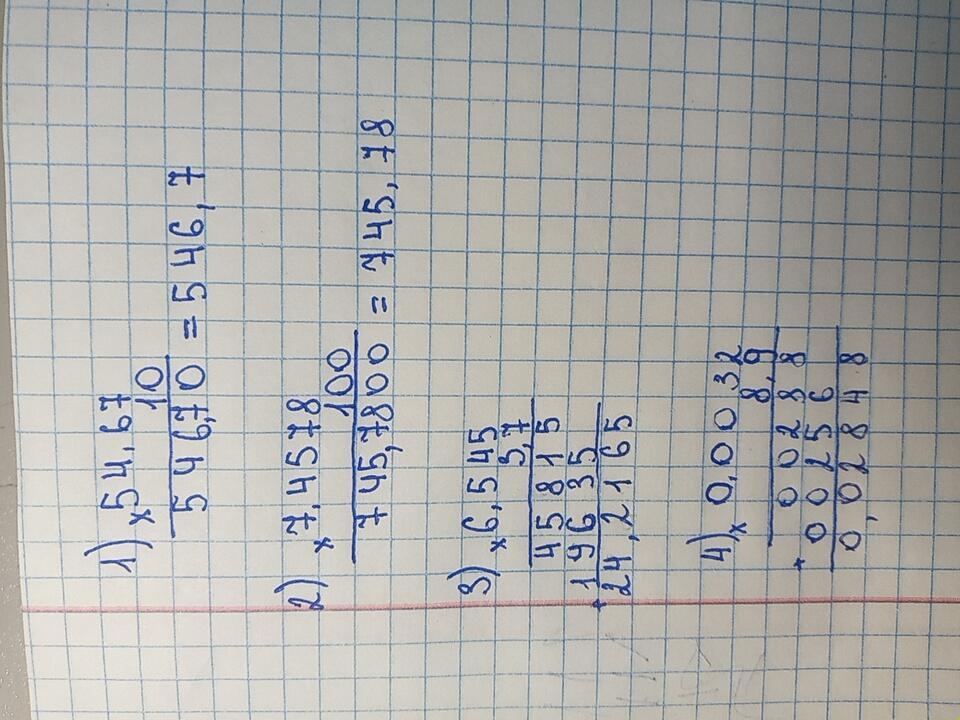 1) × 54,67
10
546,70 = 546,7
2) × 7,4578
100
745,7800 = 745,78
3) × 6,545
3,7
45815
+ 19635
24,2165
4) × 0,0032
8,9
00288
+ 00256
0,02848